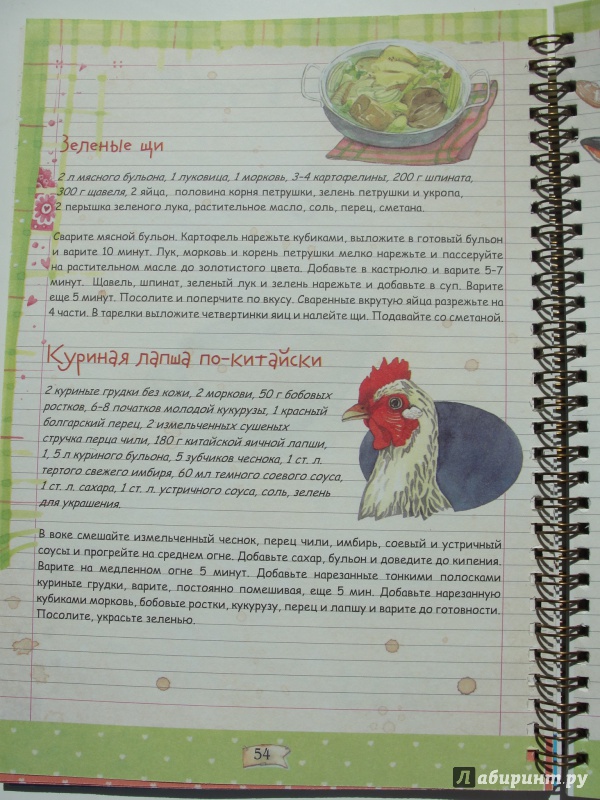 Зеленые щи
2 л мясного бульона, 1 луковица, 1 морковь, 3-4 картофелины, 200 г шпината,
300 г щавеля, 2 яйца, половина корня петрушки, зелень петрушки и укропа,
2 перышка зеленого лука, растительное масло, соль, перец, сметана.
Сварите мясной бульон. Картофель нарежьте кубиками, выложите в готовый бульон
и варите 10 минут. Лук, морковь и корень петрушки мелко нарежьте и пассеруйте
на растительном масле до золотистого цвета. Добавьте в кастрюлю и варите 5-7
минут. Щавель, шпинат, зеленый лук и зелень нарежьте и добавьте в суп. Варите
еще 5 минут. Посолите и поперчите по вкусу. Сваренные вкрутую яйца разрежьте на
4 части. В тарелки выложите четвертинки яиц и налейте щи. Подавайте со сметаной.
Куриная лапша по-китайски
2 куриные грудки без кожи, 2 моркови, 50 г бобовых
ростков, 6-8 початков молодой кукурузы, 1 красный
болгарский перец, 2 измельченных сушеных
стручка перца чили, 180 г китайской яичной лапши,
1, 5 л куриного бульона, 5 зубчиков чеснока, 1 ст. л.
тертого свежего имбиря, 60 мл темного соевого соуса,
1 ст. л. сахара, 1 ст. л. устричного соуса, соль, зелень
для украшения.
В воке смешайте измельченный чеснок, перец чили, имбирь, соевый и устричный
соусы и прогрейте на среднем огне. Добавьте сахар, бульон и доведите до кипения.
Варите на медленном огне 5 минут. Добавьте нарезанные тонкими полосками
куриные грудки, варите, постоянно помешивая, еще 5 мин. Добавьте нарезанную
кубиками морковь, бобовые ростки, кукурузу, перец и лапшу и варите до готовности.
Посолите, украсьте зеленью.
54
Лабиринт.ру